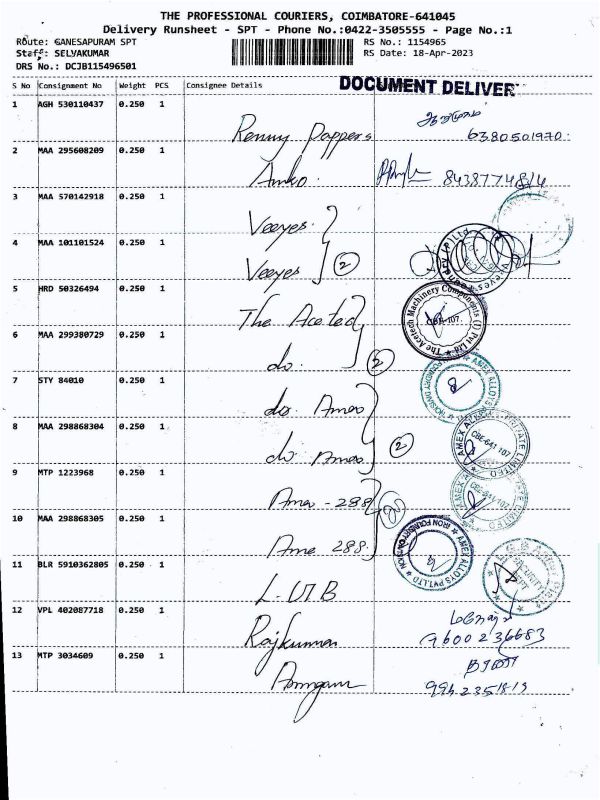 THE PROFESSIONAL COURIERS, COIMBATORE-641045
Delivery Runsheet - SPT - Phone No.:0422-3505555 - Page No.:1
Route: GANESAPURAM SPT RS No.: 1154965
Staff: SELVAKUMAR RS Date: 18-Apr-2023
DRS No.: DCJB115496501
DOCUMENT DELIVER
S No Consignment No Weight PCS Consignee Details
1 AGH 530110437 0.250 1
Renny Pappers 6380501970
2 MAA 295608209 0.250 1
Anko 8438774814
3 MAA 570142918 0.250 1
Veeyes
4 MAA 101101524 0.250 1
Veeyes 2
5 HRD 50326494 0.250 1
The Aceted
The Acetech Machinery Components (I) Pvt Ltd
CBE-107.
6 MAA 299380729 0.250 1
do. 2
7 STY 84010 0.250 1
do. Amex
8 MAA 298868304 0.250 1
do Amex 2
CBE-641 107
9 MTP 1223968 0.250 1
Amex - 288 2
CBE-641 107
10 MAA 298868305 0.250 1
Ame 288.
AMEX ALLOYS PVT.LTD IRON FOUNDRY DIVISION
11 BLR 5910362805 0.250 1
12 VPL 402087718 0.250 1
Rajkumar 9600236683
13 MTP 3034609 0.250 1